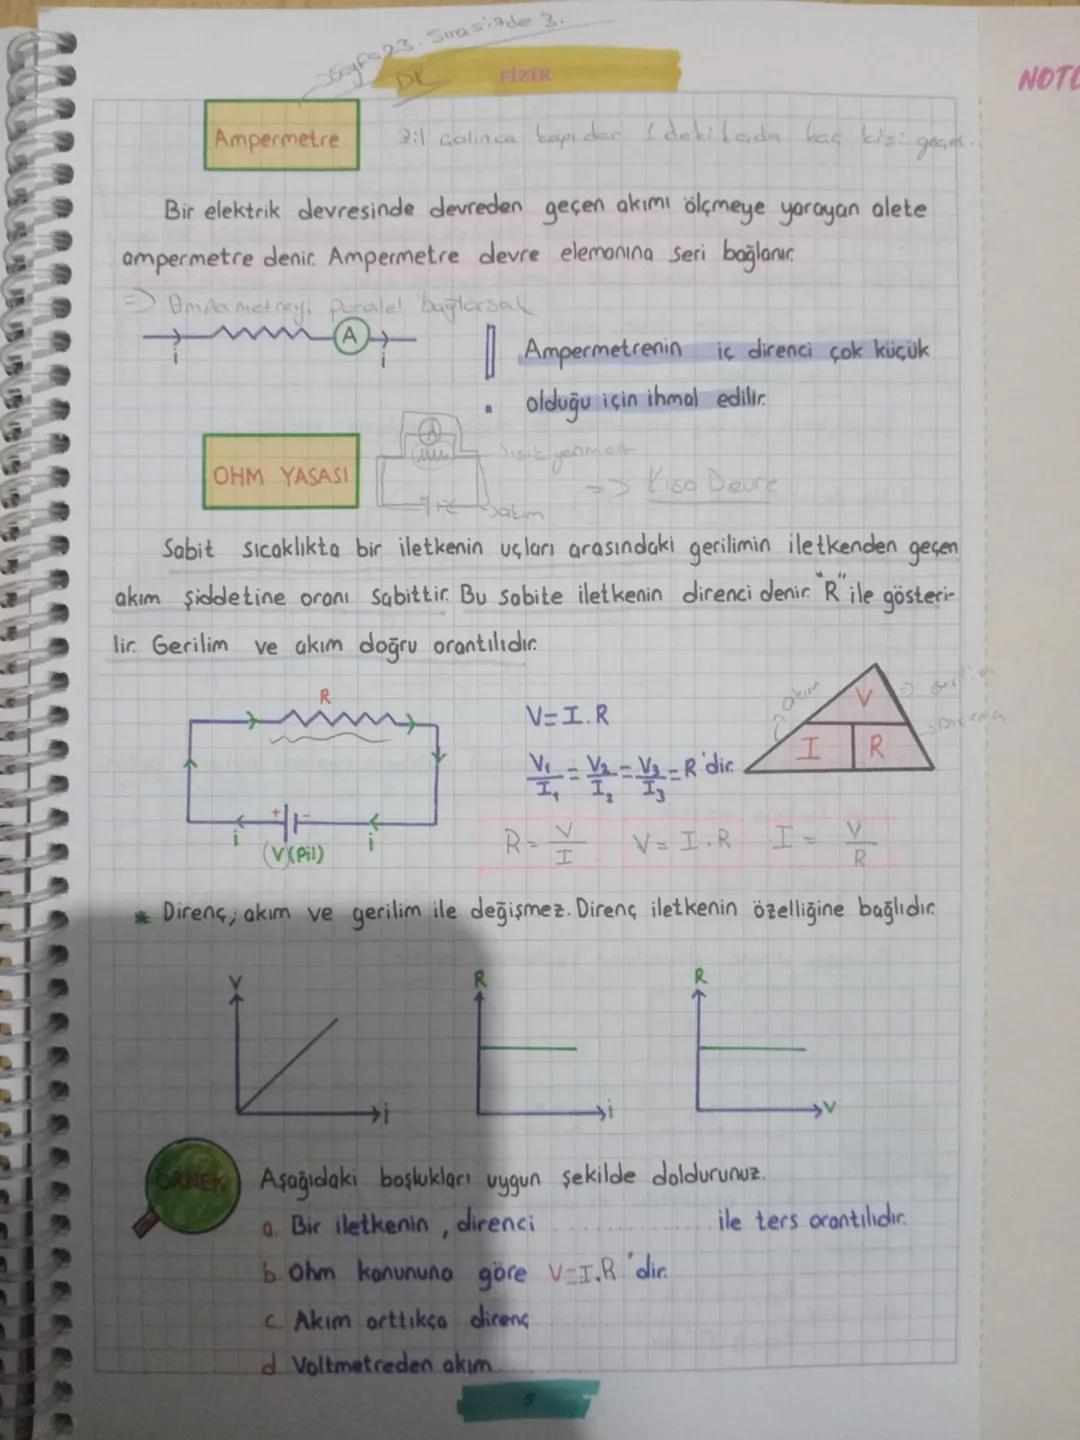 Sayfa 23. Sırasizde 3.
FİZİK
DK
NOTO
Ampermetre
Zil çalınca kapıdan 1 dakikada kaç kişi geçer.
Bir elektrik devresinde devreden geçen akımı ölçmeye yarayan alete
ampermetre denir. Ampermetre devre elemanına seri bağlanır.
=> Ampermetreyi paralel bağlarsak
A
i i
Ampermetrenin iç direnci çok küçük
olduğu için ihmal edilir.
A
OHM YASASI
Işık yanmaz
=> Kısa Devre
akım
Sabit sıcaklıkta bir iletkenin uçları arasındaki gerilimin iletkenden geçen
akım şiddetine oranı sabittir. Bu sabite iletkenin direnci denir. "R" ile gösteri-
lir. Gerilim ve akım doğru orantılıdır.
R
+ -
i i
V (Pil)
V=I.R
V₁/I₁ = V₂/I₂ = V₃/I₃ = R'dir.
akım
V
=> Gerilim
I R
Direnç
R = V/I
V = I.R
I = V/R
* Direnç; akım ve gerilim ile değişmez. Direnç iletkenin özelliğine bağlıdır.
V R R
i i V
ÖRNEK
Aşağıdaki boşlukları uygun şekilde doldurunuz.
a. Bir iletkenin, direnci ............ ile ters orantılıdır.
b. Ohm kanununa göre V=I.R 'dir.
c. Akım arttıkça direnç
d. Voltmetreden akım
5